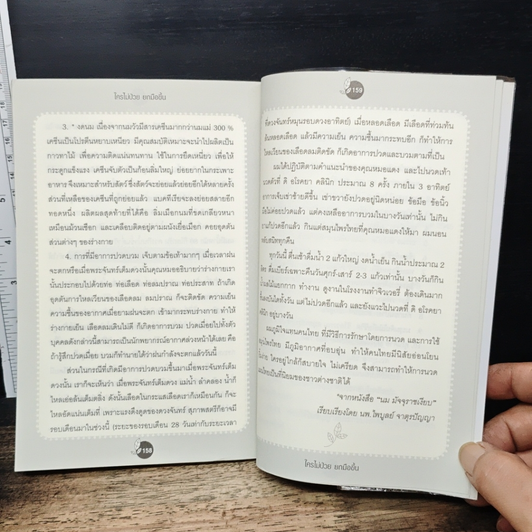 ใครไม่ป่วย ยกมือขึ้น
3. งดนม เนื่องจากนมวัวมีสารเคซีนมากกว่านมแม่ 300 %
เคซีนเป็นโปรตีนหยาบเหนียว มีคุณสมบัติเหมาะจะนำไปติดเป็น
กาวทาไม้ เพื่อความติดแน่นทนทาน ใช้ในการยึดเหนี่ยว เพื่อให้
กระดูกแข็งแรง เคซีนจับตัวเป็นก้อนลิ่มใหญ่ ย่อยยากในกระเพาะ
อาหาร จึงเหมาะสำหรับสัตว์ ซึ่งสัตว์จะย่อยแล้วย่อยอีกได้หลายครั้ง
ส่วนที่เหลือของเคซีนที่ถูกย่อยแล้ว แบคทีเรียจะลงย่อยสลายอีก
ทอดหนึ่ง ผลิตผลสุดท้ายที่ได้คือ ลิ่มเมือกนมที่ขดเกลียวหนา
เหมือนม้วนเชือก และเคลือบติดอยู่ตามผนังเยื่อเมือก คอยอุดตัน
ส่วนต่างๆ ของร่างกาย
4. การที่มีอาการปวดบวม เจ็บตามข้อเท้ามากๆ เมื่อเวลาฝน
จะตกหรือเมื่อพระจันทร์เต็มดวงนั้นคุณหมออธิบายว่าร่างกายเรา
นั้นประกอบไปด้วยท่อ ท่อเลือด ท่อลมปราณ ท่อประสาท ถ้าเกิด
อุดตันการไหลเวียนของเลือดลม ลมปราณ ก็จะติดขัด ความเย็น
ความชื้นของอากาศเมื่อยามฝนจะตก เข้ามากระทบร่างกาย ทำให้
ร่างกายเย็น เลือดลมเดินไม่ดี ก็เกิดอาการบวม ปวดเมื่อยไปทั้งตัว
บุคคลดังกล่าวนี้สามารถเป็นนักพยากรณ์อากาศล่วงหน้าได้เลย คือ
ถ้ารู้สึกปวดเมื่อย บวมก็ทำนายได้ว่าฝนกำลังจะตกแล้ววันนี้
ส่วนในกรณีที่เกิดมีอาการปวดบวมขึ้นมาเมื่อพระจันทร์เต็ม
ดวงนั้น เราก็จะเห็นว่า เมื่อพระจันทร์เต็มดวง แม่น้ำ ลำคลอง น้ำก็
ไหลเอ่อล้นเต็มตลิ่ง ดังนั้นเลือดในกระแสเลือดเราก็เหมือนกัน ก็จะ
ไหลอัดแน่นเต็มที่ เพราะแรงดึงดูดของดวงจันทร์ สุภาพสตรีก็อาจมี
รอบเดือนมาในช่วงนี้ (ระยะของรอบเดือน 28 วันเท่ากับระยะเวลา
158
159
ที่ดวงจันทร์หมุนรอบดวงอาทิตย์) เมื่อหลอดเลือด มีเลือดที่ท่วมท้น
ล้นหลอดเลือด แล้วมีความเย็น ความชื้นมากระทบอีก ก็ทำให้การ
ไหลเวียนของเลือดลมติดขัด ก็เกิดอาการปวดและบวมตามที่เป็น
ผมได้ปฏิบัติตามคำแนะนำของคุณหมอแดง และไปนวดเท้า
นวดตัวที่ ดิ อโรคยา คลินิก ประมาณ 8 ครั้ง ภายใน 3 อาทิตย์
อาการเจ็บเช่าช้าดีขึ้น เช่าขวายังปวดอยู่นิดหน่อย ข้อมือ ข้อนิ้ว
มือไม่ค่อยปวดแล้ว แต่คงเหลืออาการบวมในบางวันเท่านั้น ไม่กิน
ยาแก้ปวดอีกแล้ว กินแต่สมุนไพรไทยที่คุณหมอแดงให้มา ผมนอน
หลับสนิททุกคืน
ทุกวันนี้ ตื่นเช้าดื่มน้ำ 2 แก้วใหญ่ งดน้ำเย็น กินน้ำประมาณ 2
ลิตร ดื่มเบียร์เฉพาะคืนวันศุกร์-เสาร์ 2-3 แก้วเท่านั้น บางวันก็กิน
น้ำแต่ไม่ได้แยกกาก ทำงาน สูงานในโรงงานทำจิวเวอรี่ ต้องเดินมาก
ขึ้นลงบันไดทั้งวัน แต่ไม่ปวดอีกแล้ว และยังแวะไปนวดที่ ดิ อโรคยา
คลินิก อยู่บางวัน
ผมภูมิใจแทนคนไทย ที่มีวิธีการรักษาโดยการนวด และการใช้
สมุนไพรไทย มีภูมิอากาศที่อบอุ่น ทำให้คนไทยมีนิสัยอ่อนโยน
น่ารัก ใครอยู่ใกล้ก็สบายใจ ไม่เครียด จึงสามารถทำให้การนวด
แผนไทยเป็นที่นิยมของชาวต่างชาติได้
"จากหนังสือ "นม มัจจุราชเงียบ"
เรียบเรียงโดย นพ. ไพบูลย์ จาตุรปัญญา
ใครไม่ป่วย ยกมือขึ้น